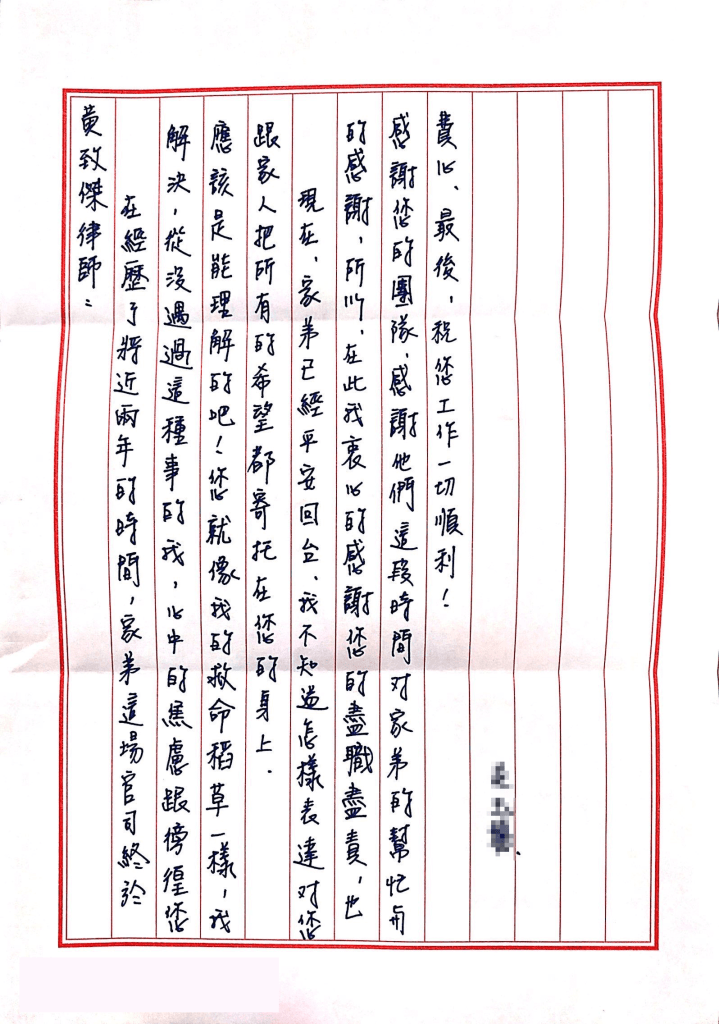 黃致傑律師：
在經歷了將近兩年的時間，家弟這場官司終於
解決，從沒遇過這種事的我，心中的焦慮跟徬徨您
應該是能理解的吧！您就像我的救命稻草一樣，我
跟家人把所有的希望都寄托在您的身上．
現在，家弟已經平安回台、我不知道怎樣表達对您
的感謝，所以，在此我衷心的感謝您的盡職盡責，也
感謝您的團隊、感謝他們這段時間对家弟的幫忙与
費心、最後，祝您工作一切順利！